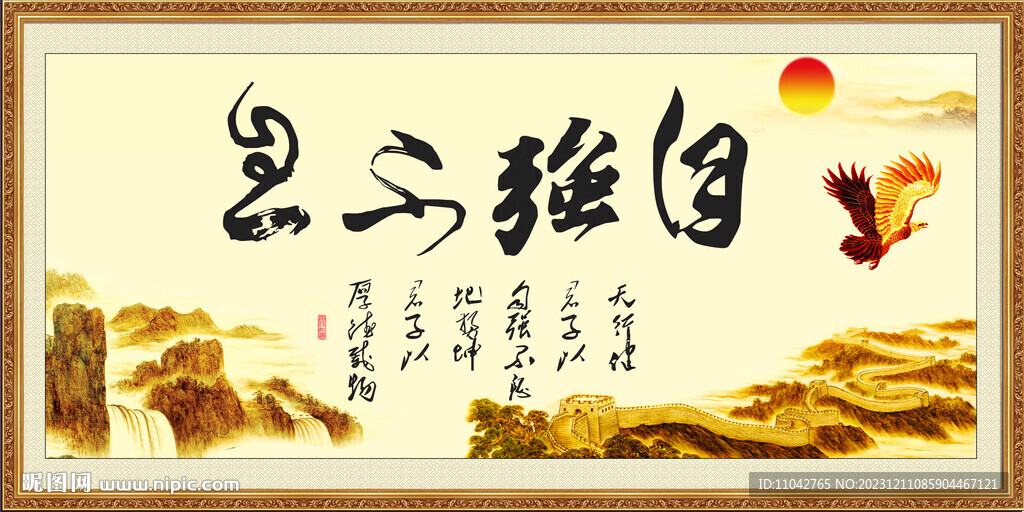 自强不息
天行健
君子以
自强不息
地势坤
君子以
厚德载物
昵图网 www.nipic.com
ID:11042765 NO:20231211085904467121